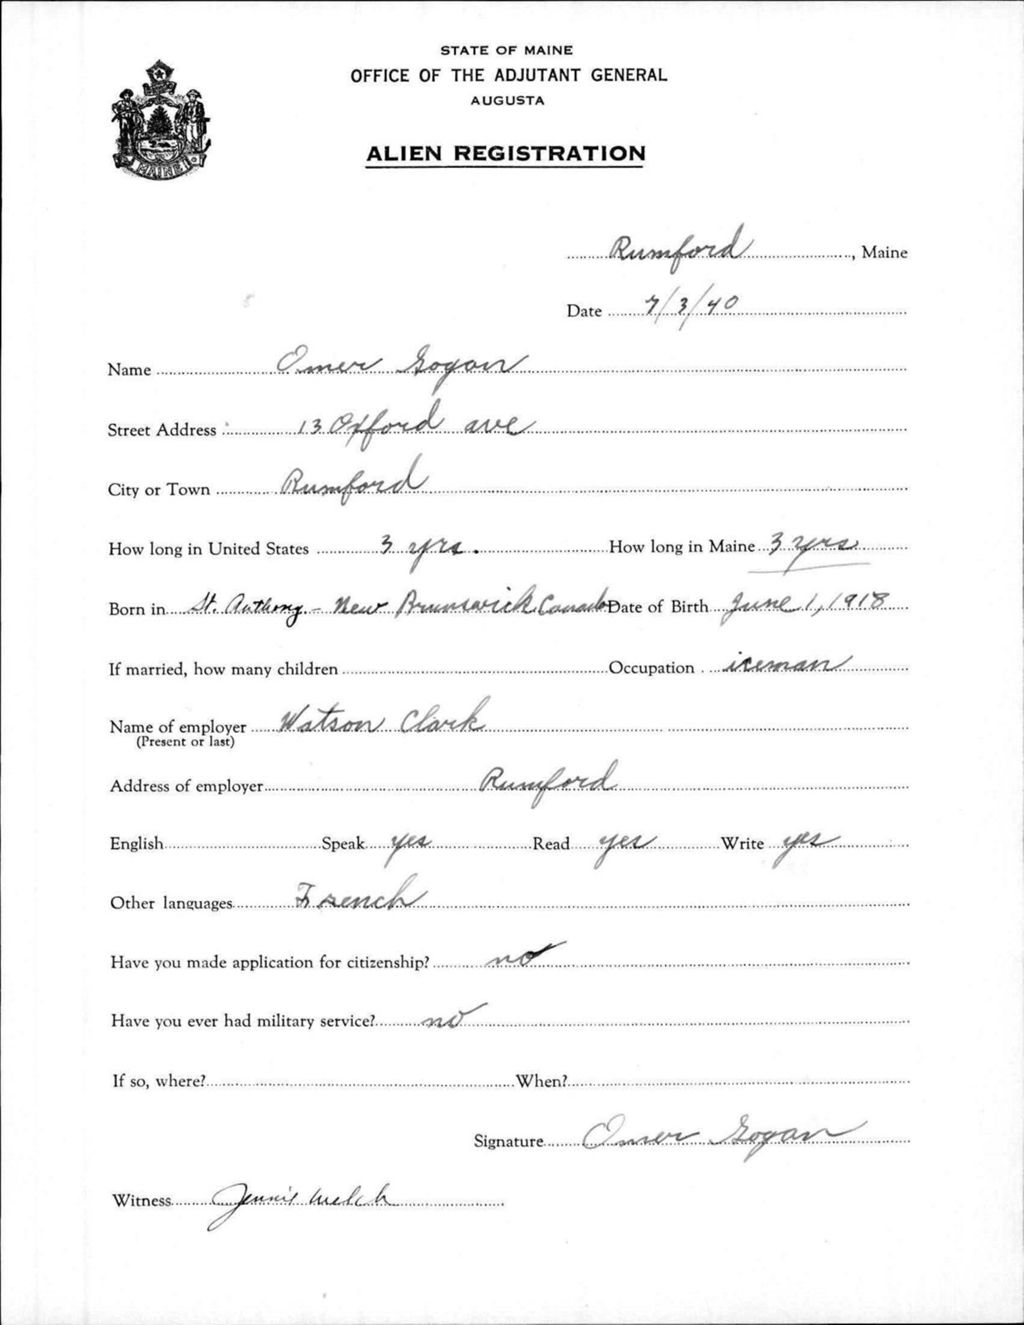 STATE OF MAINE
OFFICE OF THE ADJUTANT GENERAL
AUGUSTA
ALIEN REGISTRATION
MAINE
Rumford, Maine
Date 7/3/40
Name Omer Gogan
Street Address 13 Oxford ave
City or Town Rumford
How long in United States 3 yrs. How long in Maine 3 yrs
Born in St. Anthony - New Brunswick Canada Date of Birth June 1, 1918
If married, how many children Occupation iceman
Name of employer Watson Clark
(Present or last)
Address of employer Rumford
English Speak yes Read yes Write yes
Other languages French
Have you made application for citizenship? no
Have you ever had military service? no
If so, where? When?
Signature Omer Gogan
Witness Jennie Welch